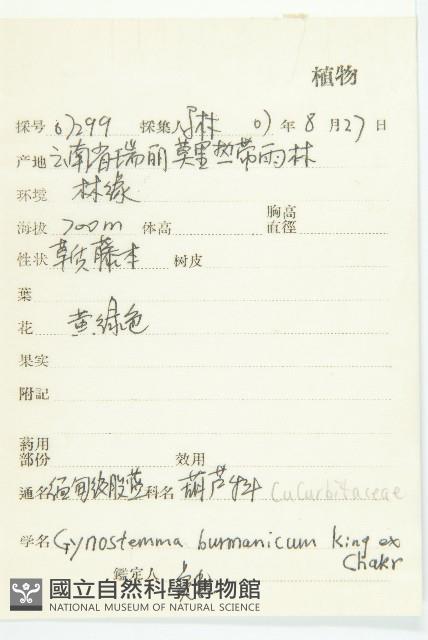 植物
採号 07299 採集人 林 07 年 8 月 27 日
产地 云南省瑞丽莫里热带雨林
环境 林缘
海拔 700m 体高 胸高直徑
性状 草质藤本 树皮
葉
花 黄绿色
果实
附記
药用部份 效用
通名 缅甸绞股蓝 科名 葫芦科 Cucurbitaceae
学名 Gynostemma burmanicum King ex Chakr
鑑定人
國立自然科學博物館
NATIONAL MUSEUM OF NATURAL SCIENCE